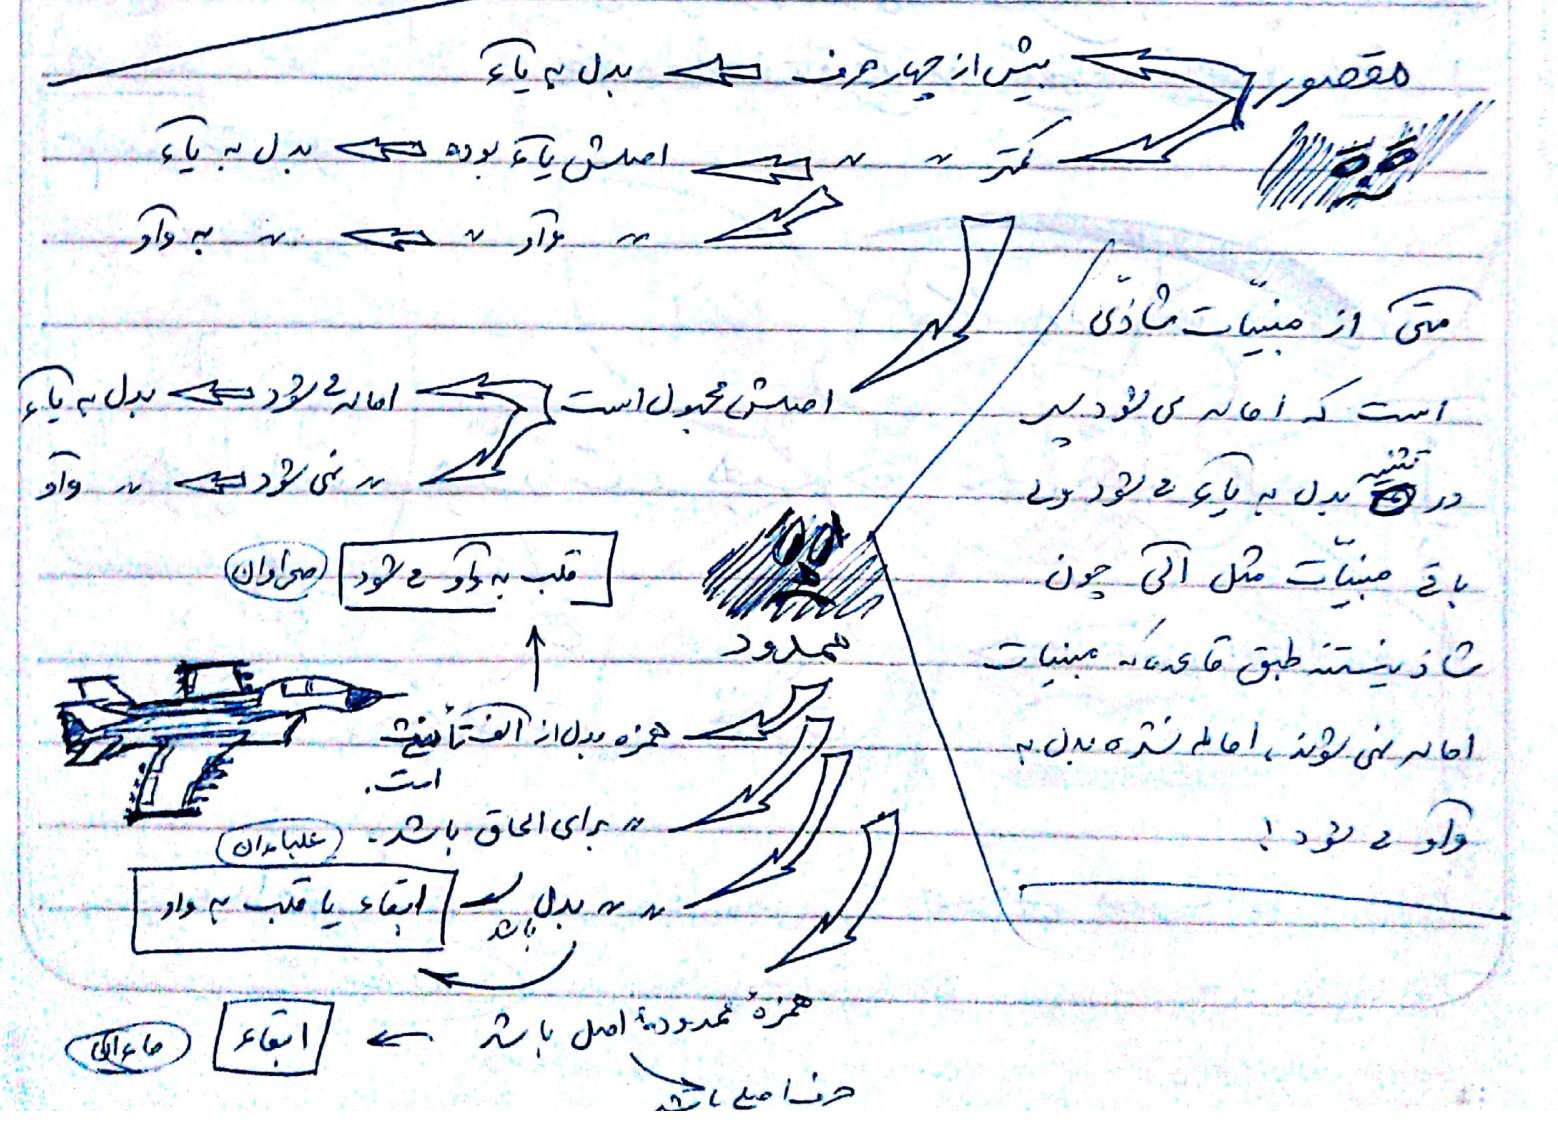 مقصور بیش از چهار حرف ⇐ بدل به یاء
کمتر ״ ״ ⇐ اصلش یاء بوده ⇐ بدل به یاء
״ واو ״ ⇐ ״ به واو
اصلش مجهول است اماله می شود ⇐ بدل به یاء
״ نمی شود ⇐ ״ واو
متی از مبنیّات شاذّی
است که اماله می شود پس
در تثنیه بدل به یاء می شود ولی
باقی مبنیّات مثل الی چون
شاذ نیستند طبق قاعده که مبنیات
اماله نمی شوند، اماله نشده بدل به
واو می شود!
قلب به واو می شود صحراوان
ممدود
همزه بدل از الف تأنیث
است.
״ برای الحاق باشد. علباوان
״ ״ بدل باشد ابقاء یا قلب به واو
همزهٔ ممدوده اصل باشد ← ابقاء
حرف اصلی باشد